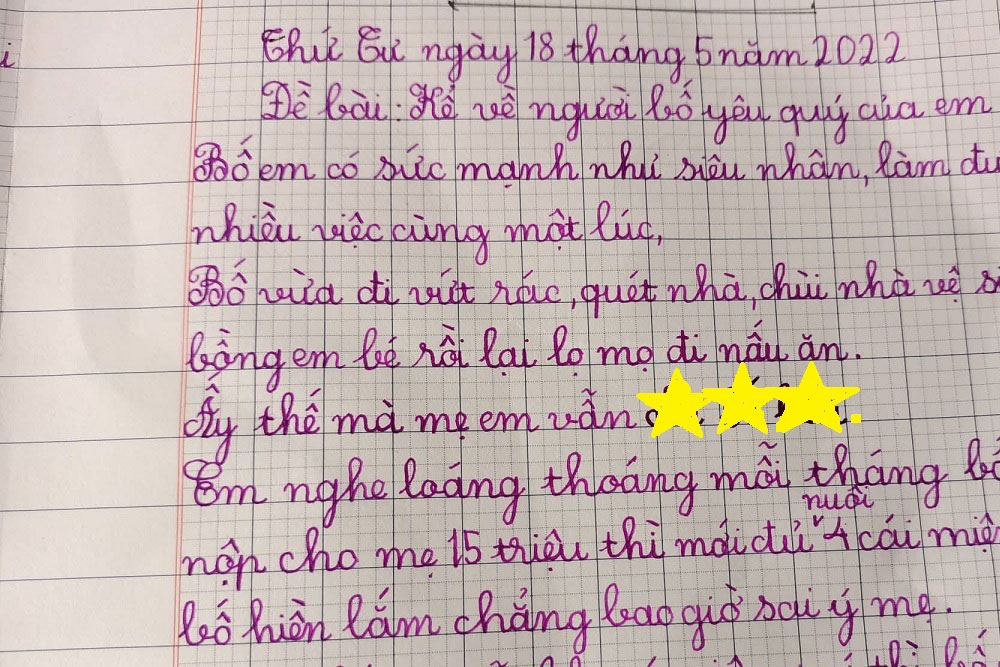 Thứ Tư ngày 18 tháng 5 năm 2022
Đề bài: Kể về người bố yêu quý của em
Bố em có sức mạnh như siêu nhân, làm
nhiều việc cùng một lúc,
Bố vừa đi vứt rác, quét nhà, chùi nhà vệ
bồng em bé rồi lại lọ mọ đi nấu ăn.
Ấy thế mà mẹ em vẫn
Em nghe loáng thoáng mỗi tháng
nuôi
nộp cho mẹ 15 triệu thì mới đủ 4 cái
bố hiền lắm chẳng bao giờ sai ý mẹ.